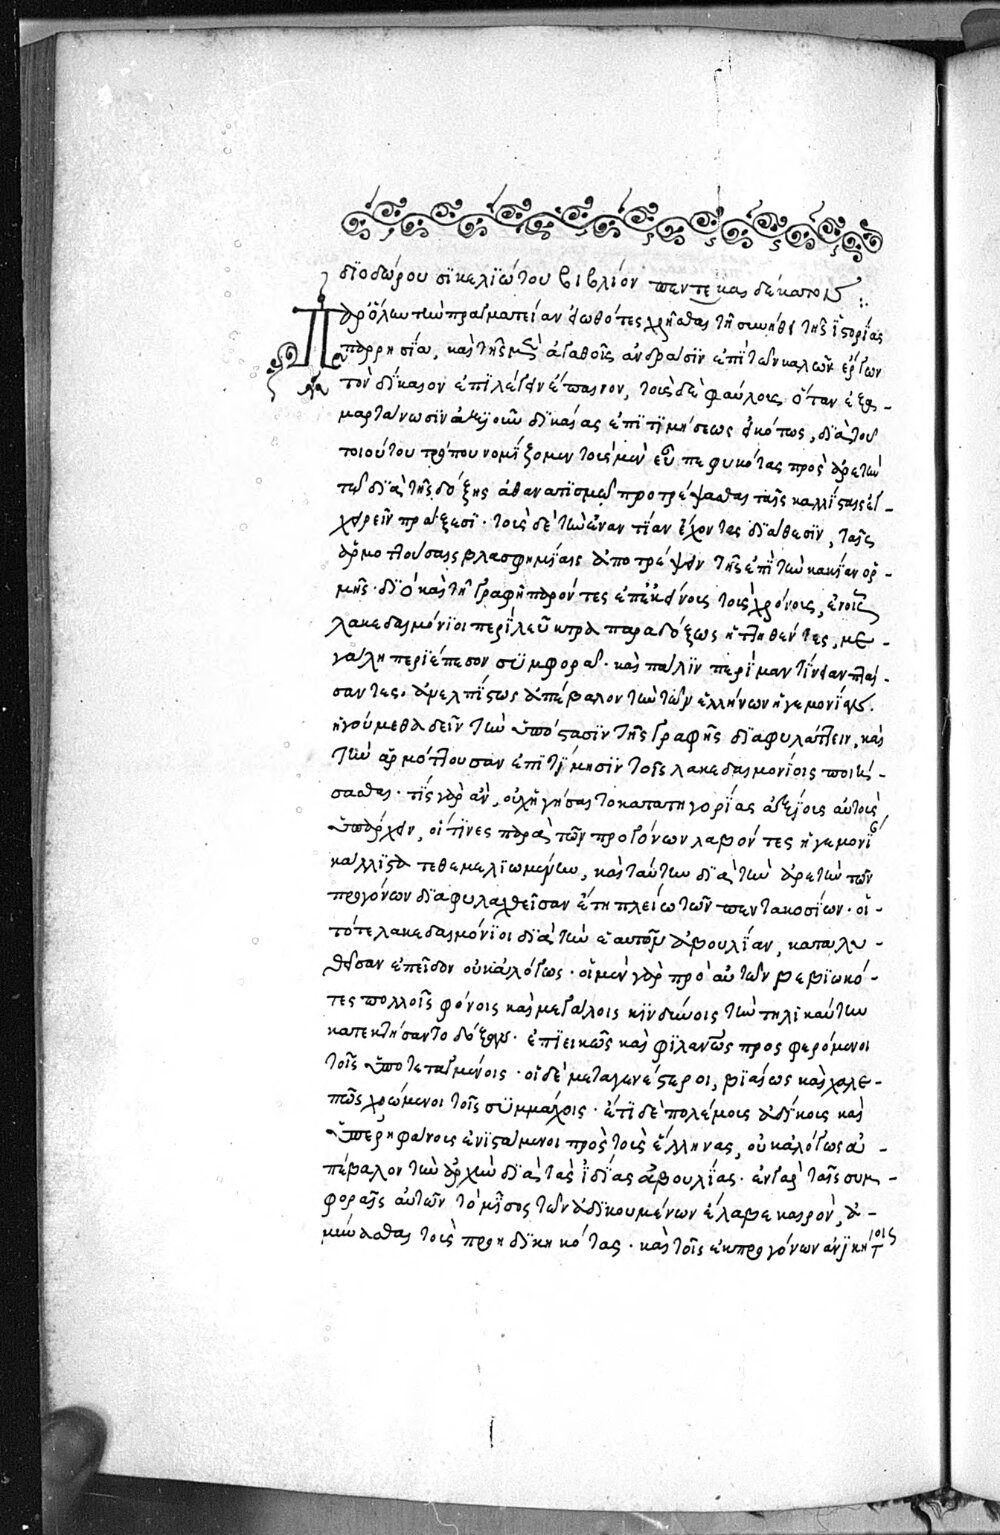 διοδώρου σικελιώτου βιβλίον πεντεκαιδέκατον
Παρ' ὅλην τὴν πραγματείαν εἰωθότες χρῆσθαι τῇ συνήθει τῆς ἱστορίας
παρρησίᾳ, καὶ τοῖς μὲν ἀγαθοῖς ἀνδράσιν ἐπὶ τῶν καλῶν ἔργων
τὸν δίκαιον ἐπιλέγειν ἔπαινον, τοὺς δὲ φαύλους ὅταν ἐξα-
μαρτάνωσιν ἀξιοῦν δικαίας ἐπιτιμήσεως εἰκότως, διὰ τοῦ
τοιούτου τρόπου νομίζομεν τοὺς μὲν εὖ πεφυκότας πρὸς ἀρετὴν
τῷ διὰ τῆς δόξης ἀθανατισμῷ προτρέψασθαι ταῖς καλλίσταις ἐγ-
χειρεῖν πράξεσι· τοὺς δὲ τὴν ἐναντίαν ἔχοντας διάθεσιν, ταῖς
ἁρμοττούσαις βλασφημίαις ἀποτρέψειν τῆς ἐπὶ τὴν κακίαν ὁρ-
μῆς· διὸ καὶ τῇ γραφῇ παρόντες ἐπ' ἐκείνους τοὺς χρόνους, ἐν οἷς
λακεδαιμόνιοι περὶ λεῦκτρα παραδόξως ἡττηθέντες, με-
γάλῃ περιέπεσον συμφορᾷ· καὶ πάλιν περὶ μαντίνειαν πταί-
σαντες, ἀνελπίστως ἀπέβαλον τὴν τῶν ἑλλήνων ἡγεμονίαν.
ἡγούμεθα δεῖν τὴν ὑπόστασιν τῆς γραφῆς διαφυλάττειν, καὶ
τὴν ἁρμόττουσαν ἐπιτίμησιν τοῖς λακεδαιμονίοις ποιή-
σασθαι· τίς γὰρ ἂν, οὐχ ἡγήσαιτο κατατηγορίας ἀξίους αὐτοὺς
ὑπάρχειν, οἵτινες παρὰ τῶν προγόνων λαβόντες ἡγεμονί
κάλλιστα τεθεμελιωμένην, καὶ ταύτην διὰ τὴν ἀρετὴν τῶν
προγόνων διαφυλαχθεῖσαν ἔτη πλείω τῶν πεντακοσίων· οἱ
τότε λακεδαιμόνιοι διὰ τὴν ἑαυτῶν ἀβουλίαν, καταλυ-
θεῖσαν ἐπεῖδον οὐκ ἀλόγως· οἱ μὲν γὰρ πρὸ αὐτῶν βεβιωκό-
τες πολλοῖς φόνοις καὶ μεγάλοις κινδύνοις τὴν τηλικαύτην
κατεκτήσαντο δόξαν· ἐπιεικῶς καὶ φιλανως προσφερόμενοι
τοῖς ὑποτεταγμένοις· οἱ δὲ μεταγενέστεροι, βιαίως καὶ χαλε-
πῶς χρώμενοι τοῖς συμμάχοις· ἔτι δὲ πολέμους ἀδίκους καὶ
ὑπερηφάνους ἐνιστάμενοι πρὸς τοὺς ἕλληνας, οὐκ ἀλόγως ἀ-
πέβαλον τὴν ἀρχὴν διὰ τὰς ἰδίας ἀβουλίας· ἐν γὰρ ταῖς συμ-
φοραῖς αὐτῶν τὸ μῖσος τῶν ἀδικουμένων ἔλαβε καιρὸν, ἀ-
μύνασθαι τοὺς προηδικηκότας· καὶ τοῖς ἐκ προγόνων ἀνικήτοις